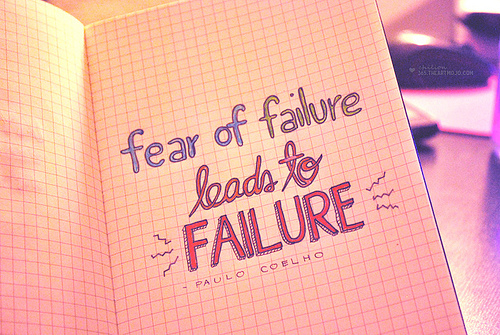 fear of failure
leads to
FAILURE
- PAULO COELHO
365.THEARTMOJO.COM